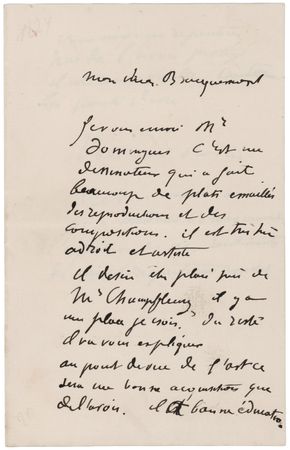 mon cher Bracquemond
Je vous envoie Mr
Domingues C'est un
dessinateur qui a fait
beaucoup de plats émaillés
des reproductions et des
compositions. il est très
adroit et artiste
il désire etre placé près de
Mr Champfleury il y a
une place je crois. Du reste
il va vous expliquer
au point de vue de l'art ce
sera une bonne acquisition que
de l'avoir. il a bonne éducation.